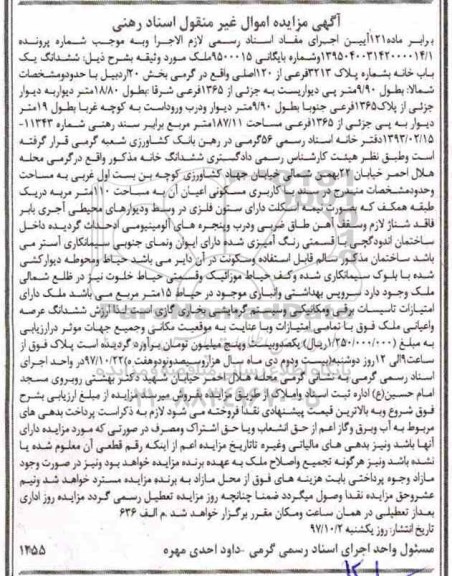 آگهی مزایده اموال غیر منقول اسناد رهنی
برابر ماده۱۲۱آیین اجرای مفاد اسناد رسمی لازم الاجرا وبه موجب شماره پرونده
وشماره بایگانی ۹۵۰۰۰۱۵ملک مورد وثیقه بشرح ذیل: ششدانگ یک
باب خانه بشماره پلاک ۳۲۱۳فرعی از ۱۲۰اصلی واقع در گرمی بخش ۲۰اردبیل با حدودومشخصات
شمالا: بطول ۹/۹۰متر پی دیواریست به جزئی از ۱۳۶۵فرعی شرقا :بطول ۱۸/۸۰متر دیواربه دیوار
جزئی از پلاک۱۳۶۵فرعی جنوبا بطول ۹/۹۰متر دیوار ودرب وروداست به کوچه غربا بطول ۱۹متر
دیوار به پی جزئی از ۱۳۶۵فرعی مساحت ۱۸۷/۱۱متر مربع برابر سند رهنی شماره ۱۱۳۴۳-
۱۳۹۳/۰۲/۱۵دفتر خانه اسناد رسمی ۵۶گرمی در رهن بانک کشاورزی شعبه گرمی قرار گرفته
است وطبق نظر هیئت کارشناس رسمی دادگستری ششدانگ خانه مذکور واقع درگرمی محله
هلال احمر خیابان ۲۲بهمن شمی خیابان جهاد کشاورزی کوچه بن بست اول غربی به مساحت
وحدودمشخصات مندرج در سند با کاربری مسکونی اعیان آن به مساحت ۱۱۰متر مربه دریک
طبقه همکف که بصورت نیمه اسکلت دارای ستون فلزی در وسط ودیوارهای محیطی آجری بابر
فاقد شناژ لازم وسقف آهن طاق ضربی ودرب وپنجره های آلومینیومی احداث گردیده داخل
ساختمان اندودگچی با قسمتی رنگ آمیزی شده دارای ایوان ونمای جنوبی سیمانکاری آستر می
باشد ساختمان مذکور سالم قابل استفاده وسکونت در آن دایر می باشد حیاط ومحوطه دیوارکشی
شده با بلوک سیمانکاری شده وکف حیاط موزائیک وقسمتی حیاط خلوت نیز در ظلع شمالی
ملک وجود دارد سرویس بهداشتی وانباری موجود در حیاط ۱۵متر مربع می باشد ملک دارای
امتیازات تاسیسات برقی ومکانیکی وسیستم گرمایشی بخاری گازی است. لذا ارزش ششدانگ عرصه
واعیانی ملک فوق با تمامی امتیازات وبا عنایت به موقعیت مکانی وجمیع جهات موثر درارزیابی
به مبلغ (۱/۲۵۰/۰۰۰/۰۰۰ریال) یکصدوبیست وپنج میلیون تومان برآورد گردیده است پلاک فوق از
ساعت۹الی ۱۲روز دوشنبه(بیست ودوم دی ماه سال هزاروسیصدونودوهفت ه)۹۷/۱۰/۲۲در واحد اجرای
اسناد رسمی گرمی به نشانی گرمی محله هلال احمر خیابان شهید دکتر بهشتی روبروی مسجد
امام حسین(ع) اداره ثبت اسناد واملاک از طریق مزایده بفروش میرسد مزایده از مبلغ ارزیابی بشرح
فوق شروع وبه بالاترین قیمت پیشنهادی نقدا فروخته می شود لازم به ذکراست پرداخت بدهی های
مربوط به آب وبرق وگاز اعم از حق انشعاب ویا حق اشتراک ومصرف در صورتی که مورد مزایده دارای
آنها باشد ونیز بدهی های مالیاتی وغیره تاتاریخ مزایده اعم از اینکه رقم قطعی آن معلوم شده یا
نشده باشد ونیز هرگونه تجمیع واصلاح ملک به عهده برنده مزایده خواهد بود ونیز در صورت وجود
مازاد وجوه پرداختی بابت هزینه های فوق از محل مازاد به برنده مزایده مسترد خواهد شد ونیم
عشروحق مزایده نقدا وصول میگردد ضمنا چنانچه روز مزایده تعطیل رسمی گردد مزایده روز اداری
بعداز تعطیلی در همان ساعت ومکان مقرر برگزار خواهد شد .م الف ۶۳۶
تاریخ انتشار: روز یکشنبه ۹۷/۱۰/۲
مسئول واحد اجرای اسناد رسمی گرمی -داود احدی مهره ۱۴۵۵